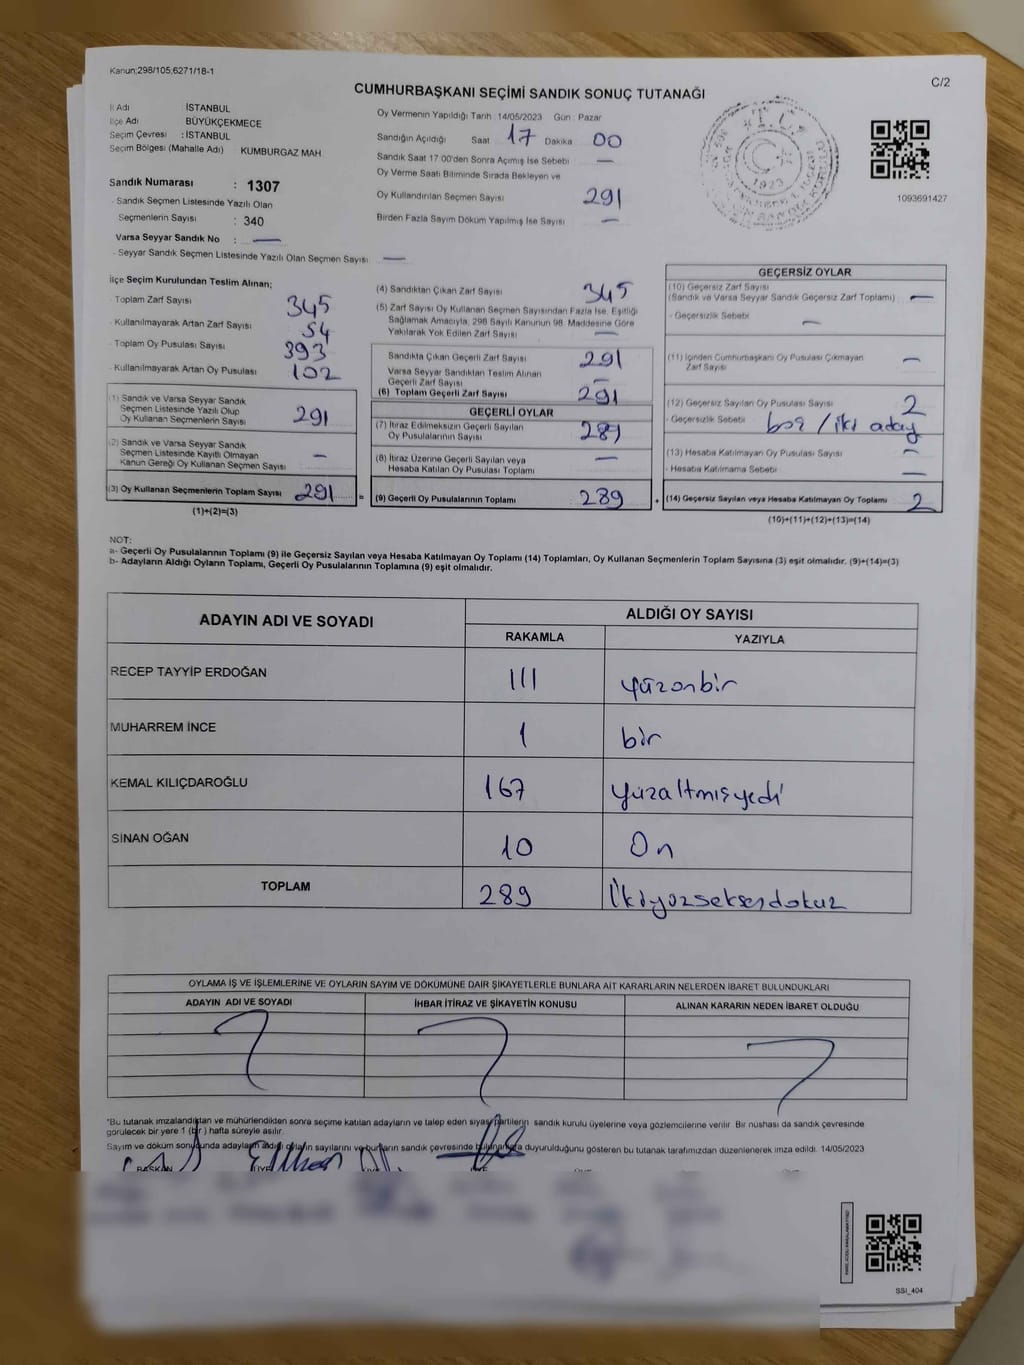 Kanun;298/105;6271/18-1
C/2
CUMHURBAŞKANI SEÇİMİ SANDIK SONUÇ TUTANAĞI
İl Adı İSTANBUL
İlçe Adı BÜYÜKÇEKMECE
Seçim Çevresi : İSTANBUL
Seçim Bölgesi (Mahalle Adı) KUMBURGAZ MAH.
Sandık Numarası : 1307
- Sandık Seçmen Listesinde Yazılı Olan
Seçmenlerin Sayısı : 340
Varsa Seyyar Sandık No : —
- Seyyar Sandık Seçmen Listesinde Yazılı Olan Seçmen Sayısı —
Oy Vermenin Yapıldığı Tarih :14/05/2023 Gün : Pazar
Sandığın Açıldığı Saat 17 Dakika 00
Sandık Saat 17.00'den Sonra Açılmış İse Sebebi —
Oy Verme Saati Bitiminde Sırada Bekleyen ve
Oy Kullandırılan Seçmen Sayısı 291
Birden Fazla Sayım Döküm Yapılmış İse Sayısı —
T.C.
1923
1093691427
İlçe Seçim Kurulundan Teslim Alınan;
- Toplam Zarf Sayısı 345
- Kullanılmayarak Artan Zarf Sayısı 54
- Toplam Oy Pusulası Sayısı 393
- Kullanılmayarak Artan Oy Pusulası 102
(1) Sandık ve Varsa Seyyar Sandık
Seçmen Listesinde Yazılı Olup
Oy Kullanan Seçmenlerin Sayısı 291
(2) Sandık ve Varsa Seyyar Sandık
Seçmen Listesinde Kayıtlı Olmayan
Kanun Gereği Oy Kullanan Seçmen Sayısı —
(3) Oy Kullanan Seçmenlerin Toplam Sayısı 291 =
(1)+(2)=(3)
(4) Sandıktan Çıkan Zarf Sayısı 345
(5) Zarf Sayısı Oy Kullanan Seçmen Sayısından Fazla İse, Eşitliği
Sağlamak Amacıyla, 298 Sayılı Kanunun 98. Maddesine Göre
Yakılarak Yok Edilen Zarf Sayısı —
Sandıkta Çıkan Geçerli Zarf Sayısı 291
Varsa Seyyar Sandıktan Teslim Alınan
Geçerli Zarf Sayısı —
(6) Toplam Geçerli Zarf Sayısı 291
GEÇERLİ OYLAR
(7) İtiraz Edilmeksizin Geçerli Sayılan
Oy Pusulalarının Sayısı 289
(8) İtiraz Üzerine Geçerli Sayılan veya
Hesaba Katılan Oy Pusulası Toplamı —
(9) Geçerli Oy Pusulalarının Toplamı 289 +
GEÇERSİZ OYLAR
(10) Geçersiz Zarf Sayısı
(Sandık ve Varsa Seyyar Sandık Geçersiz Zarf Toplamı) —
- Geçersizlik Sebebi —
(11) İçinden Cumhurbaşkanı Oy Pusulası Çıkmayan
Zarf Sayısı —
(12) Geçersiz Sayılan Oy Pusulası Sayısı 2
- Geçersizlik Sebebi boş / iki aday
(13) Hesaba Katılmayan Oy Pusulası Sayısı —
- Hesaba Katılmama Sebebi —
(14) Geçersiz Sayılan veya Hesaba Katılmayan Oy Toplamı 2
(10)+(11)+(12)+(13)=(14)
NOT:
a- Geçerli Oy Pusulalarının Toplamı (9) ile Geçersiz Sayılan veya Hesaba Katılmayan Oy Toplamı (14) Toplamları, Oy Kullanan Seçmenlerin Toplam Sayısına (3) eşit olmalıdır. (9)+(14)=(3)
b- Adayların Aldığı Oyların Toplamı, Geçerli Oy Pusulalarının Toplamına (9) eşit olmalıdır.
ADAYIN ADI VE SOYADI ALDIĞI OY SAYISI
RAKAMLA YAZIYLA
RECEP TAYYİP ERDOĞAN 111 yüzonbir
MUHARREM İNCE 1 bir
KEMAL KILIÇDAROĞLU 167 yüzaltmışyedi
SİNAN OĞAN 10 On
TOPLAM 289 İkiyüzseksendokuz
OYLAMA İŞ VE İŞLEMLERİNE VE OYLARIN SAYIM VE DÖKÜMÜNE DAİR ŞİKAYETLERLE BUNLARA AİT KARARLARIN NELERDEN İBARET BULUNDUKLARI
ADAYIN ADI VE SOYADI İHBAR İTİRAZ VE ŞİKAYETİN KONUSU ALINAN KARARIN NEDEN İBARET OLDUĞU
*Bu tutanak imzalandıktan ve mühürlendikten sonra seçime katılan adayların ve talep eden siyasi partilerin sandık kurulu üyelerine veya gözlemcilerine verilir. Bir nüshası da sandık çevresinde
görülecek bir yere 1 (bir) hafta süreyle asılır.
Sayım ve döküm sonucunda adayların aldığı oyların sayılarını ve bunların sandık çevresinde bulunanlara duyurulduğunu gösteren bu tutanak tarafımızdan düzenlenerek imza edildi. 14/05/2023
BAŞKAN ÜYE ÜYE ÜYE
SSI_404